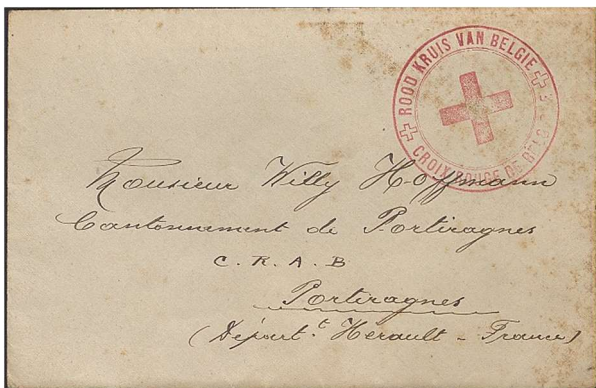 ROOD KRUIS VAN BELGIE
CROIX ROUGE DE BELG
Monsieur Willy Hoffmann
Cantonnement de Portiragnes
C. R. A. B
Portiragnes
(Départ.t Hérault - France)